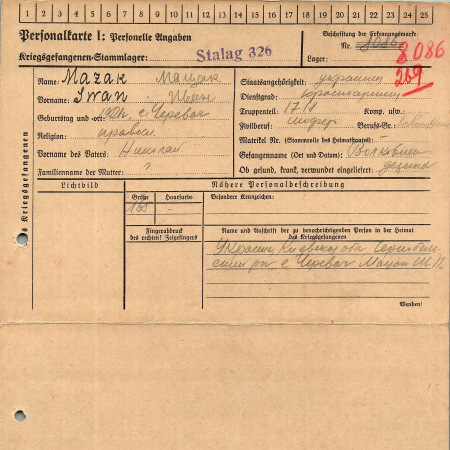 1 2 3 4 5 6 7 8 9 10 11 12 13 14 15 16 17 18 19 20 21 22 23 24 25
Personalkarte I: Personelle Angaben
Kriegsgefangenen-Stammlager: Stalag 326
Beschriftung der Erkennungsmarke:
Nr. 8086 8086
Lager: 269
Des Kriegsgefangenen
Name: Mazak Мацак
Vorname: Iwan Иван
Geburtstag und -ort: с. Черевач
Religion: правосл
Vorname des Vaters: Николай
Familienname der Mutter:
Staatsangehörigkeit: украинец
Dienstgrad: красноармеец
Truppenteil: 1718 Komp. usw.
Zivilberuf: шофер Berufs-Gr.
Matrikel Nr. (Stammrolle des Heimatstaates):
Gefangennahme (Ort und Datum):
Ob gesund, krank, verwundet eingeliefert: gesund
Lichtbild
Nähere Personalbeschreibung
Größe Haarfarbe
168 -
Besondere Kennzeichen:
Fingerabdruck
des rechten! Zeigefingers
Name und Anschrift der zu benachrichtigenden Person in der Heimat
des Kriegsgefangenen
Украин Киевская обл
с Черевач
Wenden!